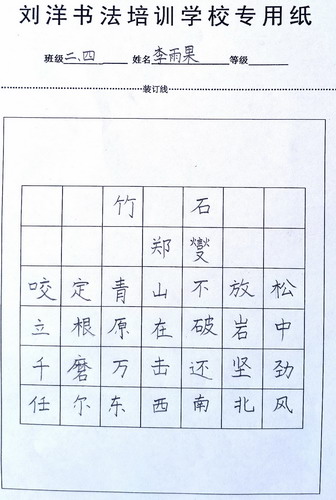 刘洋书法培训学校专用纸
班级 二、四 姓名 李雨果 等级
装订线
竹 石
郑 燮
咬 定 青 山 不 放 松
立 根 原 在 破 岩 中
千 磨 万 击 还 坚 劲
任 尔 东 西 南 北 风